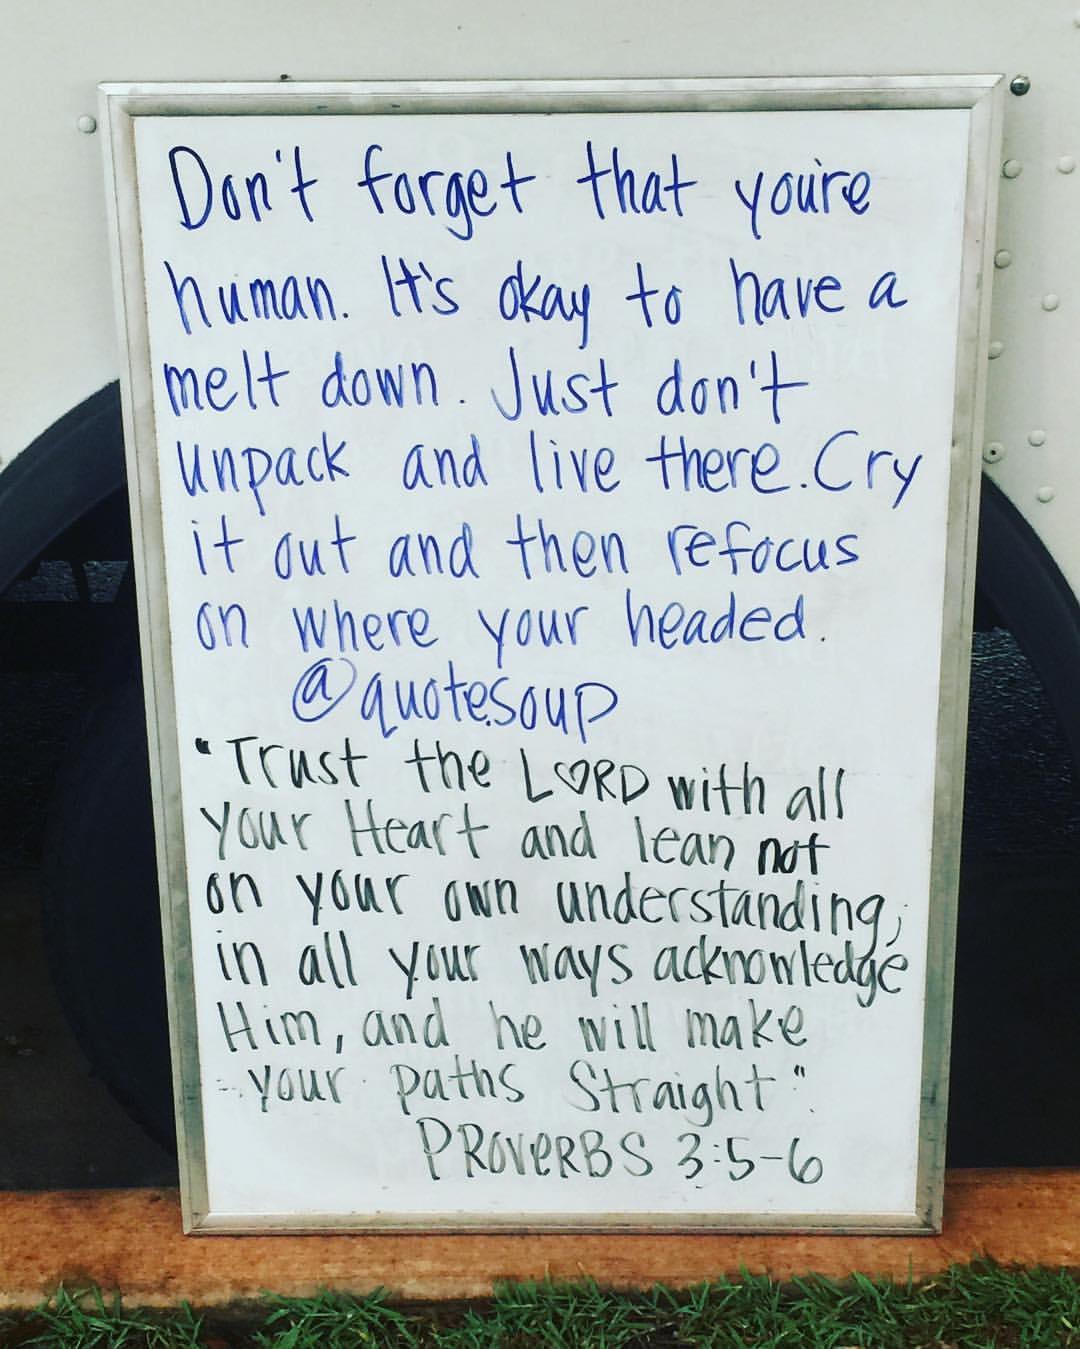 Don't forget that you're
human. It's okay to have a
melt down. Just don't
unpack and live there. Cry
it out and then refocus
on where your headed.
@quotesoup
"Trust the LORD with all
your Heart and lean not
on your own understanding,
in all your ways acknowledge
Him, and he will make
your paths Straight".
PROVERBS 3:5-6